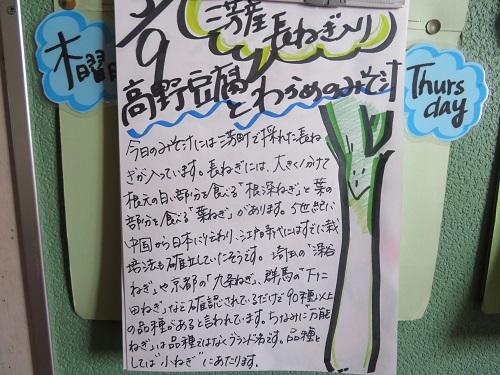 2/9
三芳産長ねぎ入り
高野豆腐
とわかめのみそ汁
木曜日
Thurs
day
今日のみそ汁には三芳町で採れた長ね
ぎが入っています。長ねぎには、大きく分けて
根元の白い部分を食べる「根深ねぎ」と葉の
部分を食べる「葉ねぎ」があります。5世紀に
中国から日本に伝わり、江戸時代にはすでに栽
培法も確立していたそうです。埼玉の"深谷
ねぎ"や京都の「九条ねぎ」、群馬の"下仁
田ねぎ"など確認されているだけで90種以上
の品種があると言われています。ちなみに"万能
ねぎ"は品種ではなくブランド名です。品種と
しては"小ねぎ"にあたります。